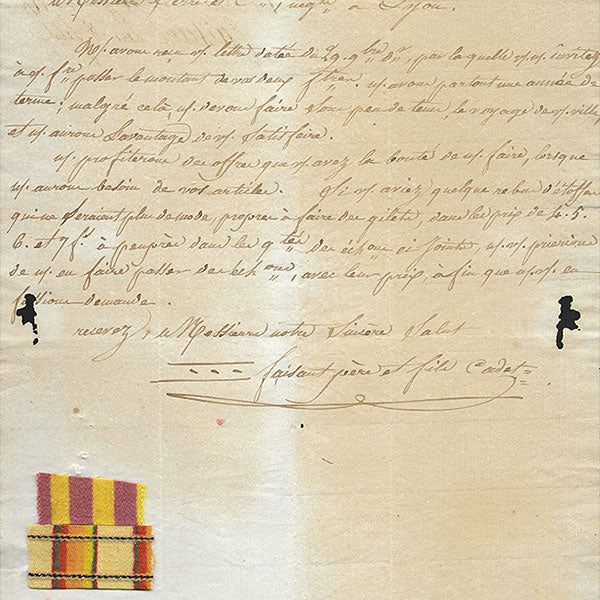 à Lyon.
N,, avons reçu v,, lettre datée du 29. 9bre dr,, par laquelle v,, n,, invitez
à v,, fre passer le montant de vos deux ftres. n,, avons partout une année de
terme; malgré celà, n,, devons faire sous peu de tems, le voyage de v,, ville,
et n,, aurons l'avantage de v,, satisfaire.
n,, profiterons des offres que v,, avez la bonté de n,, faire, lorsque
n,, aurons besoin de vos articles. Si v,, aviez quelque rebus d'étoffes
qui ne seraient plus de mode, propres à faire des gilets, dans les prix de 4. 5.
6. et 7 fs. à peuprès dans les qtés des échons ci jointe, n,, v,, prierions
de n,, en faire passer des échons, avec leur prix, à fin que n,, v,, en
fassions demande.
recevez, Messieurs notre sincère Salut
faisant père et fils Cadet